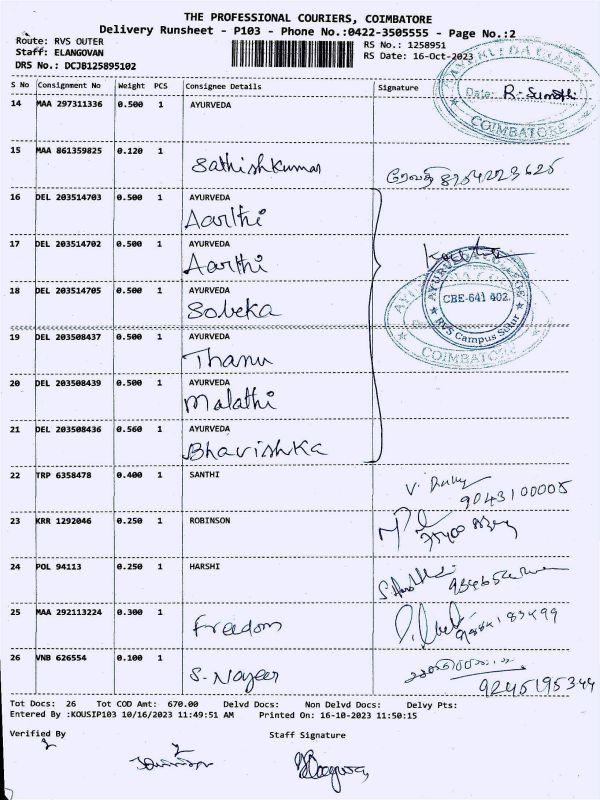 THE PROFESSIONAL COURIERS, COIMBATORE
Delivery Runsheet - P103 - Phone No.:0422-3505555 - Page No.:2
Route: RVS OUTER
Staff: ELANGOVAN
DRS No.: DCJB125895102
RS No.: 1258951
RS Date: 16-Oct-2023
S No Consignment No Weight PCS Consignee Details Signature
Date: R. Sumathi
COIMBATORE
14 MAA 297311336 0.500 1 AYURVEDA
15 MAA 861359825 0.120 1 Sathishkumar
16 DEL 203514703 0.500 1 AYURVEDA
Aarthi
17 DEL 203514702 0.500 1 AYURVEDA
Aarthi
18 DEL 203514705 0.500 1 AYURVEDA
Sobeka
CBE-641 402.
RVS Campus Sulur
COIMBATORE
19 DEL 203508437 0.500 1 AYURVEDA
Thanu
20 DEL 203508439 0.500 1 AYURVEDA
Malathi
21 DEL 203508436 0.560 1 AYURVEDA
Bhavishka
22 TRP 6358478 0.400 1 SANTHI
9043100005
23 KRR 1292046 0.250 1 ROBINSON
24 POL 94113 0.250 1 HARSHI
25 MAA 292113224 0.300 1 Freedom
26 VNB 626554 0.100 1 S. Nazeer
9245195344
Tot Docs: 26 Tot COD Amt: 670.00 Delvd Docs: Non Delvd Docs: Delvy Pts:
Entered By :KOUSIP103 10/16/2023 11:49:51 AM Printed On: 16-10-2023 11:50:15
Verified By Staff Signature